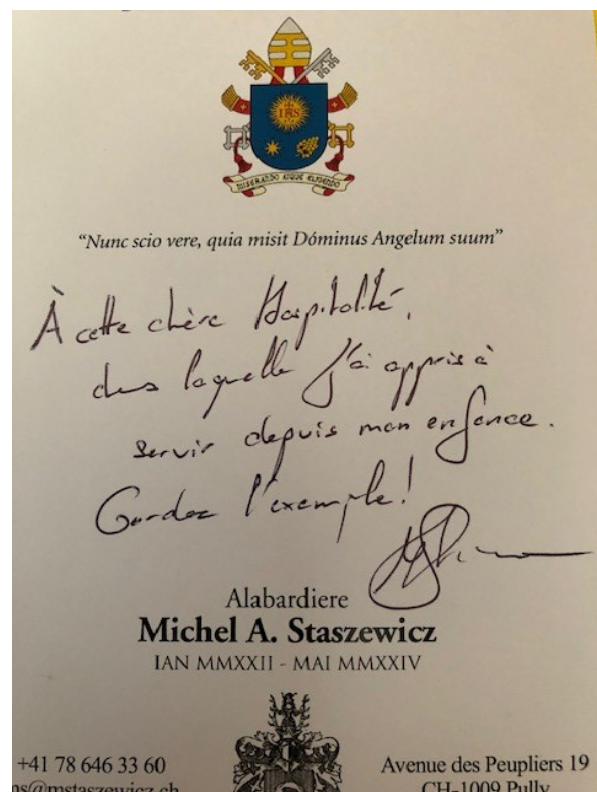 IHS
MISERANDO ATQUE ELIGENDO
“Nunc scio vere, quia misit Dóminus Angelum suum”
À cette chère Hospitalité,
dans laquelle j'ai appris à
servir depuis mon enfance.
Gardez l'exemple!
Alabardiere
Michel A. Staszewicz
IAN MMXXII - MAI MMXXIV
+41 78 646 33 60 Avenue des Peupliers 19
ms@mstaszewicz.ch CH-1009 Pully